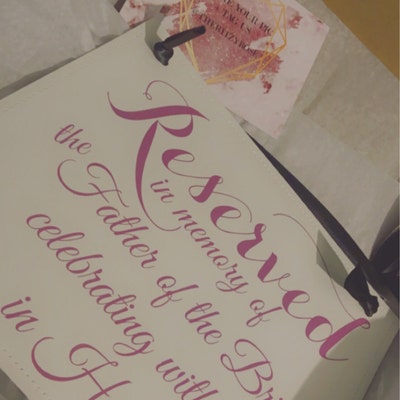 Reserved
in memory of
the Father of the Bri
celebrating with
in H